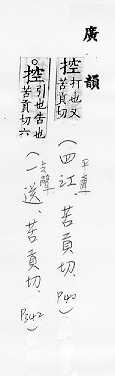 廣韻
控 打也又
苦貢切
平聲
(四江 苦貢切、P40)
控 引也告也
苦貢切六
去聲
(一送、苦貢切、P342)